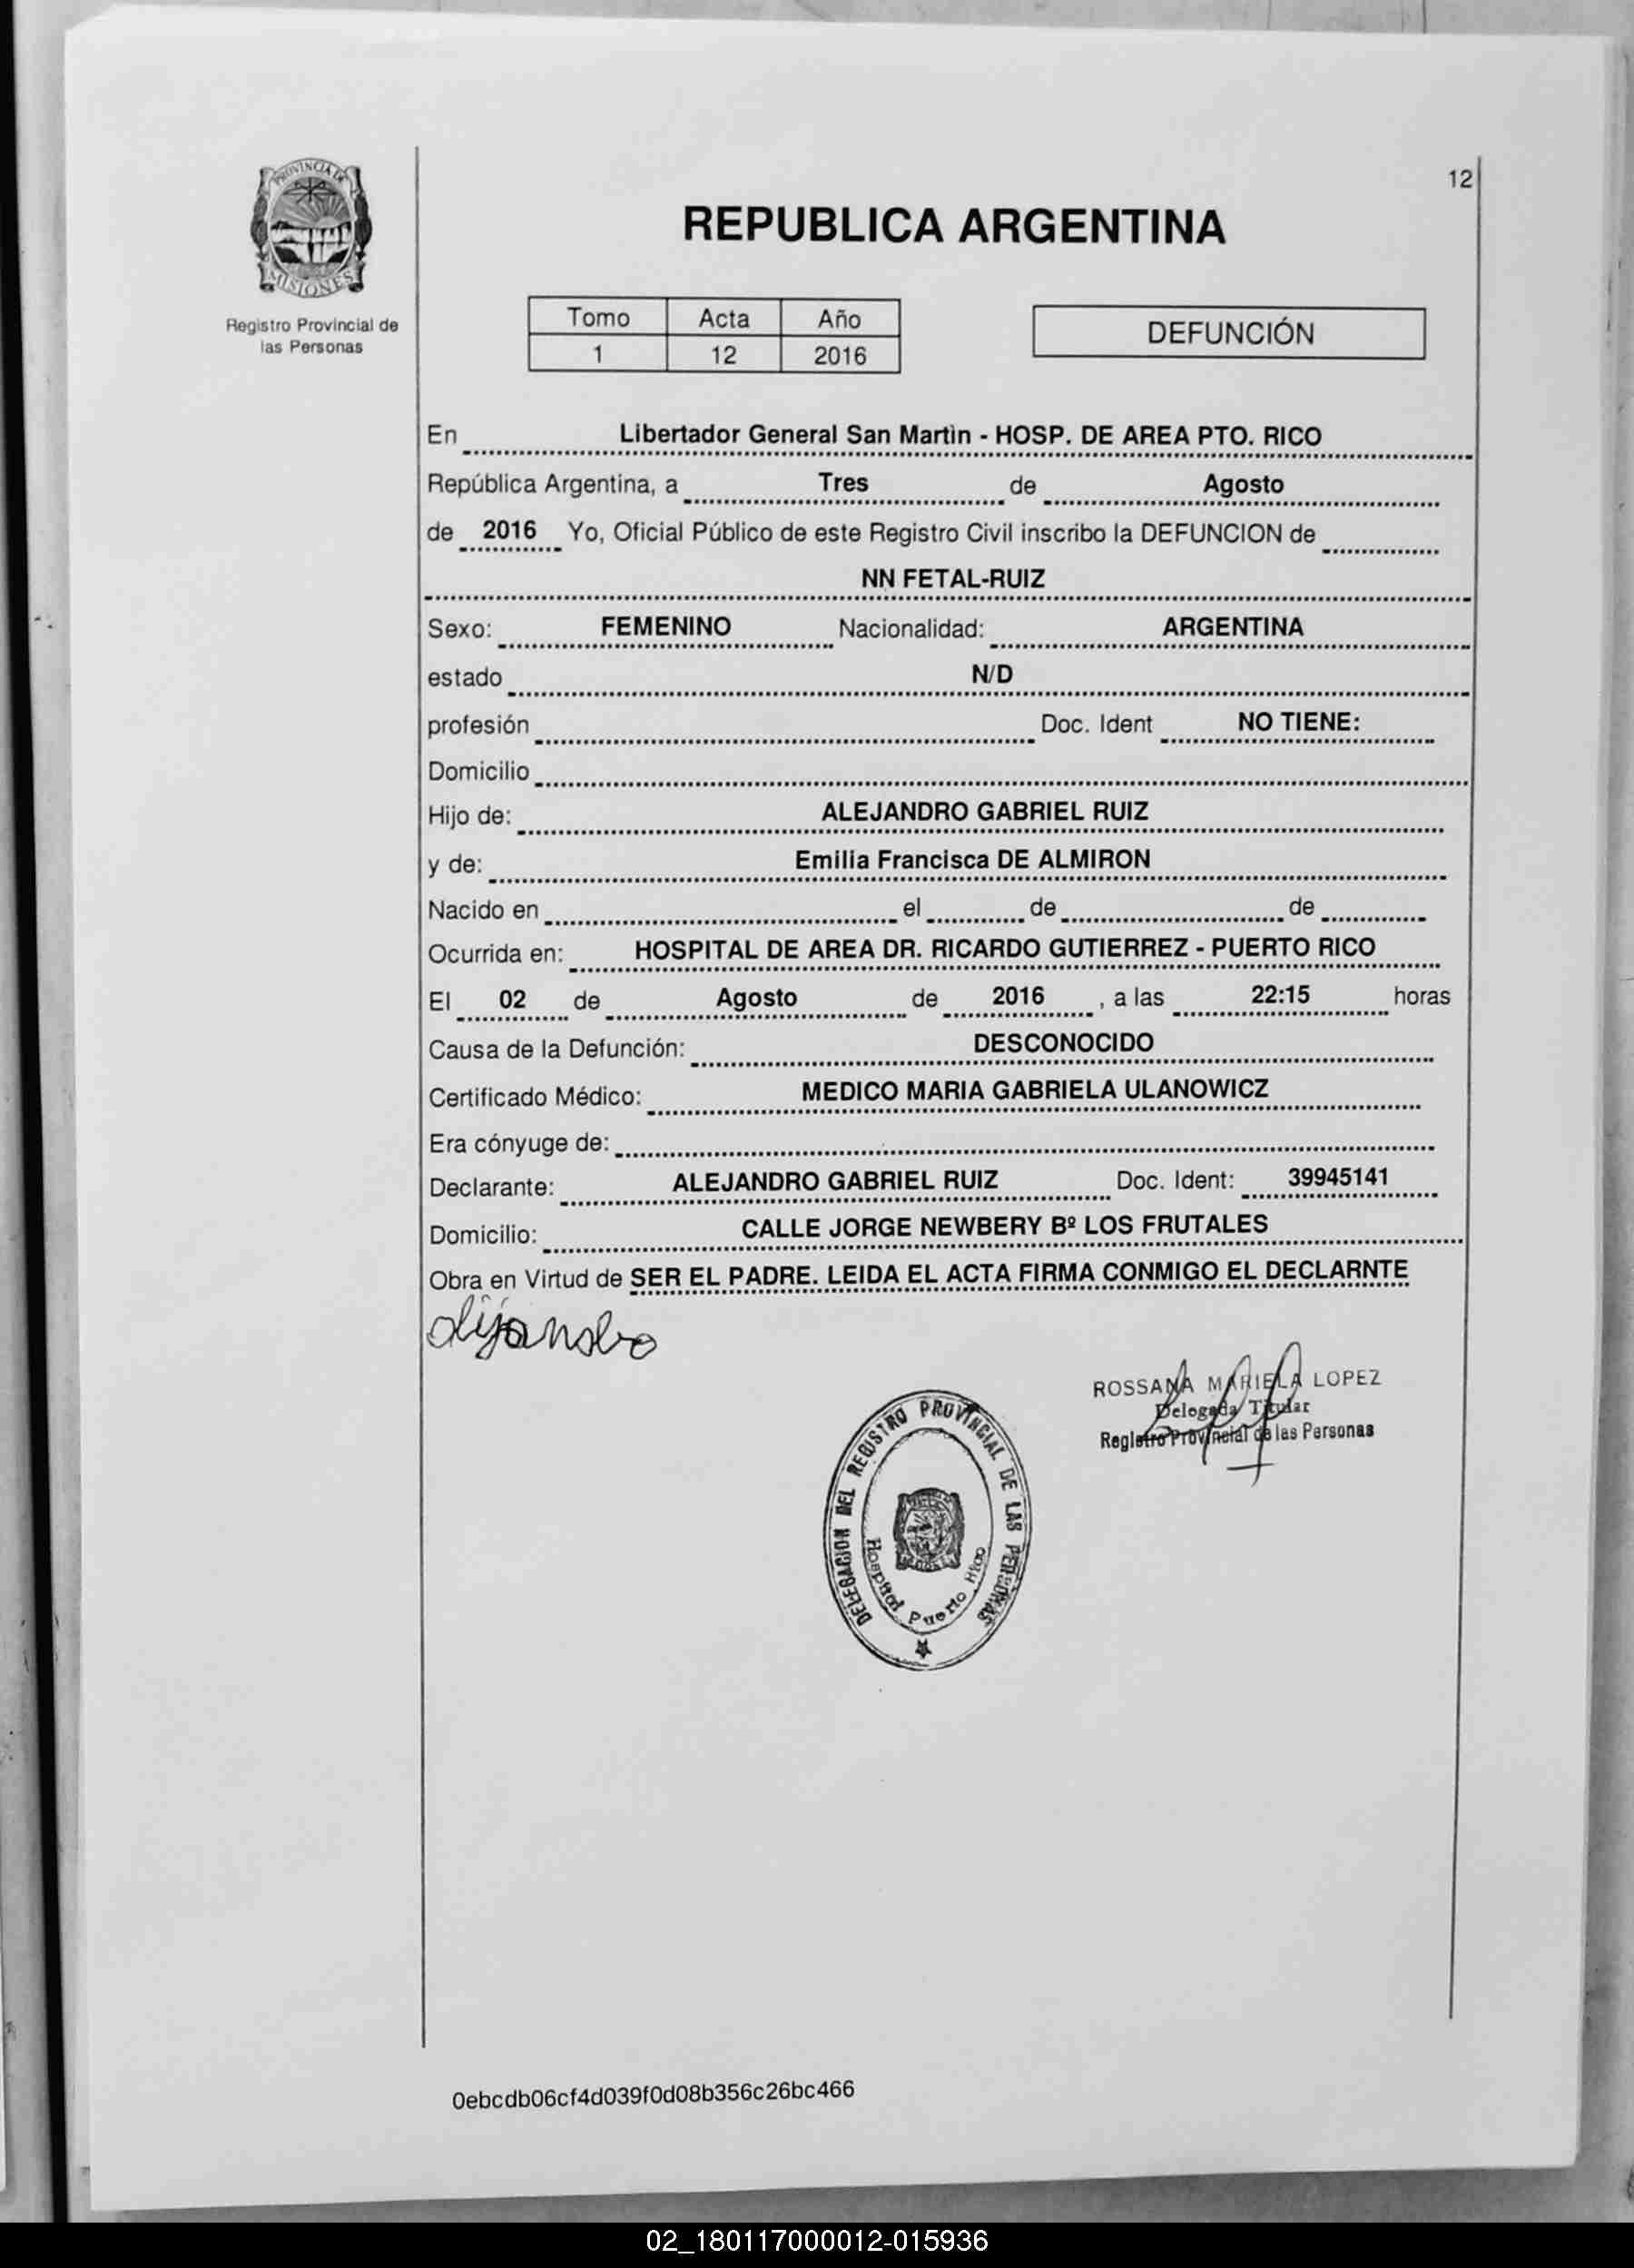 12
PROVINCIA DE
MISIONES
Registro Provincial de
las Personas
REPUBLICA ARGENTINA
Tomo Acta Año
1 12 2016
DEFUNCIÓN
En Libertador General San Martìn - HOSP. DE AREA PTO. RICO
República Argentina, a Tres de Agosto
de 2016 Yo, Oficial Público de este Registro Civil inscribo la DEFUNCION de
NN FETAL-RUIZ
Sexo: FEMENINO Nacionalidad: ARGENTINA
estado N/D
profesión Doc. Ident NO TIENE:
Domicilio
Hijo de: ALEJANDRO GABRIEL RUIZ
y de: Emilia Francisca DE ALMIRON
Nacido en el de de
Ocurrida en: HOSPITAL DE AREA DR. RICARDO GUTIERREZ - PUERTO RICO
El 02 de Agosto de 2016 , a las 22:15 horas
Causa de la Defunción: DESCONOCIDO
Certificado Médico: MEDICO MARIA GABRIELA ULANOWICZ
Era cónyuge de:
Declarante: ALEJANDRO GABRIEL RUIZ Doc. Ident: 39945141
Domicilio: CALLE JORGE NEWBERY Bº LOS FRUTALES
Obra en Virtud de SER EL PADRE. LEIDA EL ACTA FIRMA CONMIGO EL DECLARNTE
ROSSANA MARIELA LOPEZ
Delegada Titular
Registro Provincial de las Personas
DELEGACION DEL REGISTRO PROVINCIAL DE LAS PERSONAS
Hospital Puerto Rico
0ebcdb06cf4d039f0d08b356c26bc466
02_180117000012-015936